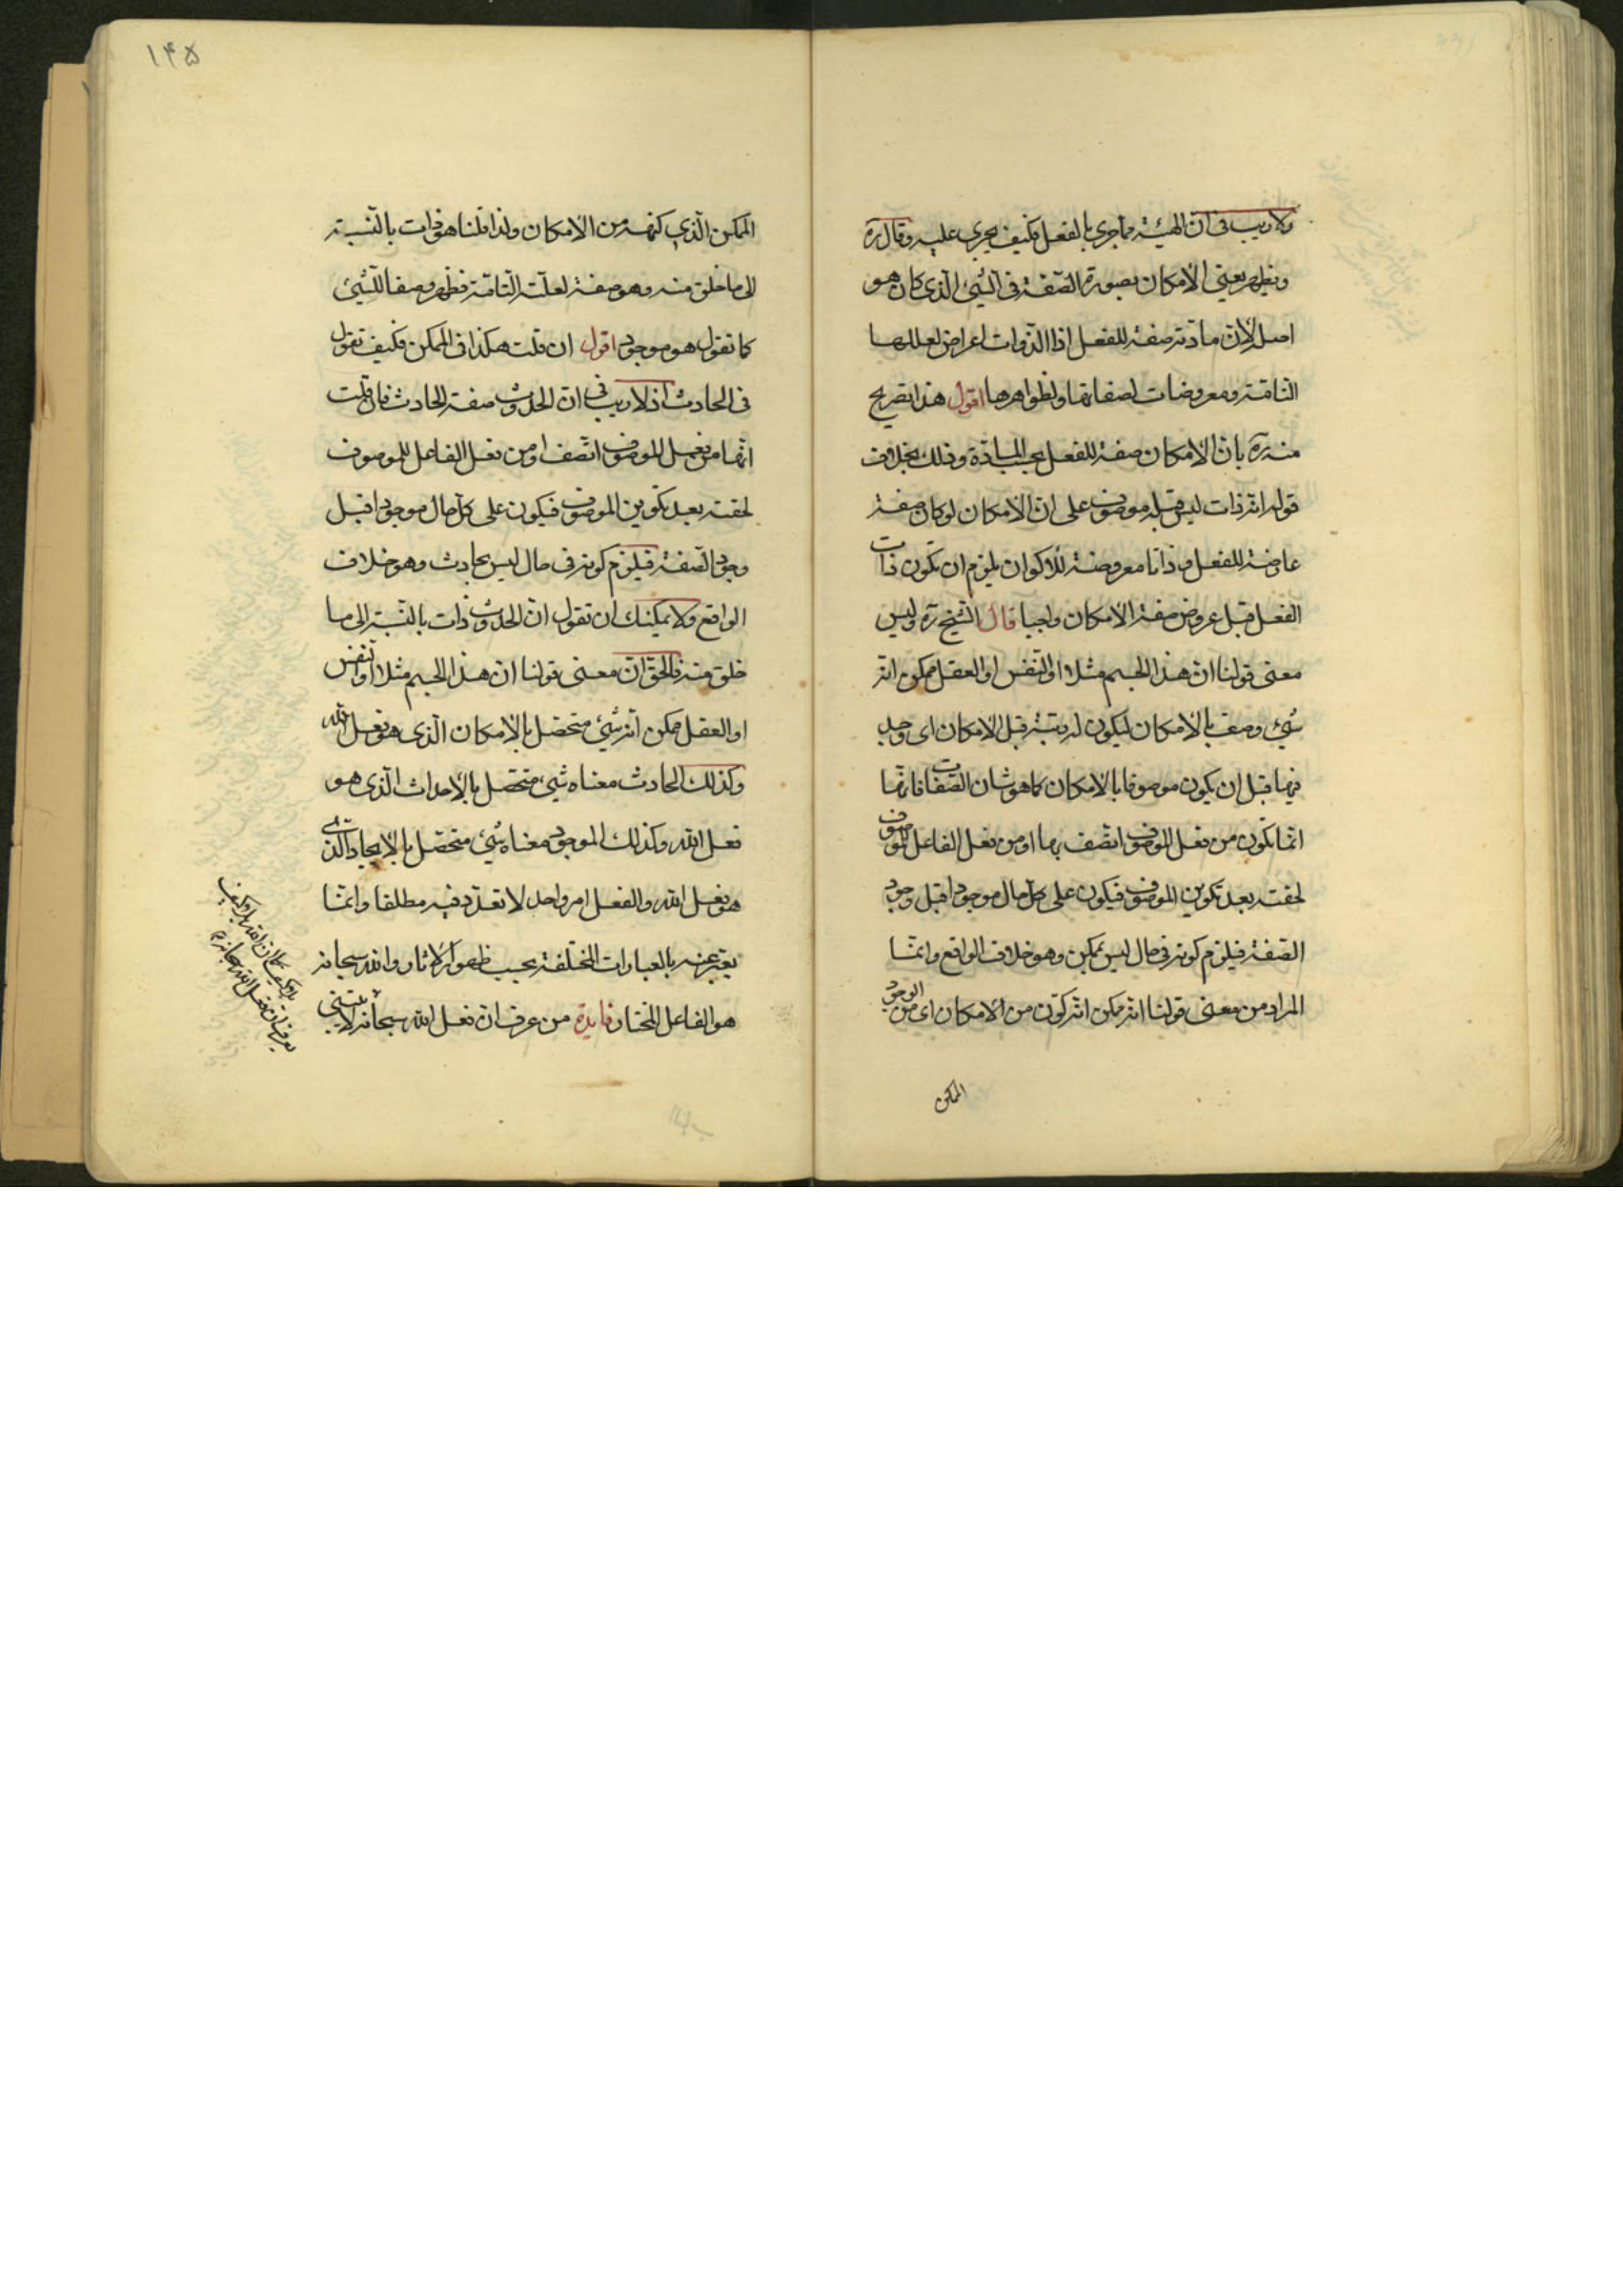 ولا ريب فى ان الهيئة مما جرى بالفعل فكيف يجرى عليه وقال ره
ويظهر يعنى الامكان بصورة الصفة فى الشيئ الذى كان هو
اصله لان مادته صفة للفعل اذا الذوات اعراض لعللها
التامة ومعروضات لصفاتها ولظواهرها اقول هذا تصريح
منه ره بان الامكان صفة للفعل بحسب المادة وذلك بخلاف
قوله انه ذات ليس قبله موصوف على ان الامكان لو كان صفة
عارضة للفعل وذاتا معروضة للاكوان يلزم ان تكون ذات
الفعل قبل عروض صفة الامكان واجبا قال الشيخ ره وليس
معنى قولنا ان هذا الجسم مثلا او النفس او العقل ممكن انه
شيئ وصف بالامكان ليكون له رتبة قبل الامكان اى وجد
فيها قبل ان يكون موصوفا بالامكان كما هو شان الصفات فانها
انما تكون من فعل الموصوف اتصف بها او من فعل الفاعل للموصوف
لحقته بعد تكوين الموصوف فيكون على كل حال موجودا قبل وجود
الصفة فيلزم كونه فى حال ليس بممكن وهو خلاف الواقع وانما
المراد من معنى قولنا انه ممكن انه كون من الامكان اى من الوجود
الممكن
١٤٥
الممكن الذى كنهه من الامكان ولذا قلنا هو ذات بالنسبة
الى ما خلق منه وهو صفة لعلته التامة فظهر وصفا للشيئ
كما تقول هو موجود اقول ان قلت هكذا فى الممكن فكيف تقول
فى الحادث اذ لا ريب فى ان الحدوث صفة الحادث فان قلت
انها من فعل الموصوف اتصف او من فعل الفاعل للموصوف
لحقته بعد تكوين الموصوف فيكون على كل حال موجودا قبل
وجود الصفة فيلزم كونه فى حال ليس بحادث وهو خلاف
الواقع ولا يمكنك ان تقول ان الحدوث ذات بالنسبة الى ما
خلق منه فالحق ان معنى قولنا ان هذا الجسم مثلا او النفس
او العقل ممكن انه شيئ متحصل بالامكان الذى هو فعل الله
وكذلك الحادث معناه شيئ متحصل بالاحداث الذى هو
فعل الله وكذلك الموجود معناه شيئ متحصل بالايجاد الذى
هو فعل الله والفعل امر واحد لا تعدد فيه مطلقا وانما
يعبر عنه بالعبارات المختلفة بحسب ظهور الاثار والله سبحانه
هو الفاعل المختار فايدة من عرف ان فعل الله سبحانه لا يثنى
بلا كيف كما ان الله بلا كيف
يعرف ان فعل الله سبحانه